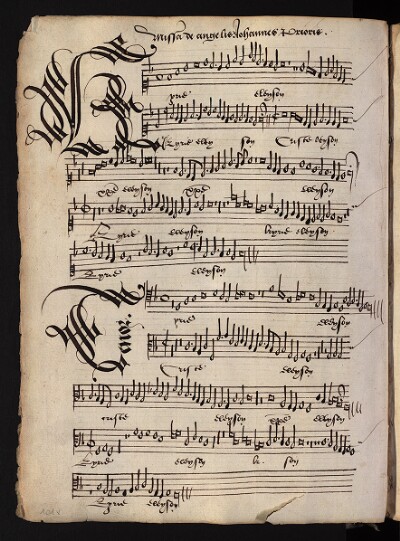 Missa de angelis Johannes Prioris.
yrie eleyson
Kyrie eley son Criste eleyson
xpe eleyson xpe eleyson
Kyrie eleyson kyrie eleyson
Kyrie eleyson
Tenor.
yrie eleyson
Criste eleyson
criste eleyson xpe eleyson
Kyrie eleyson le son
Kyrie eleyson